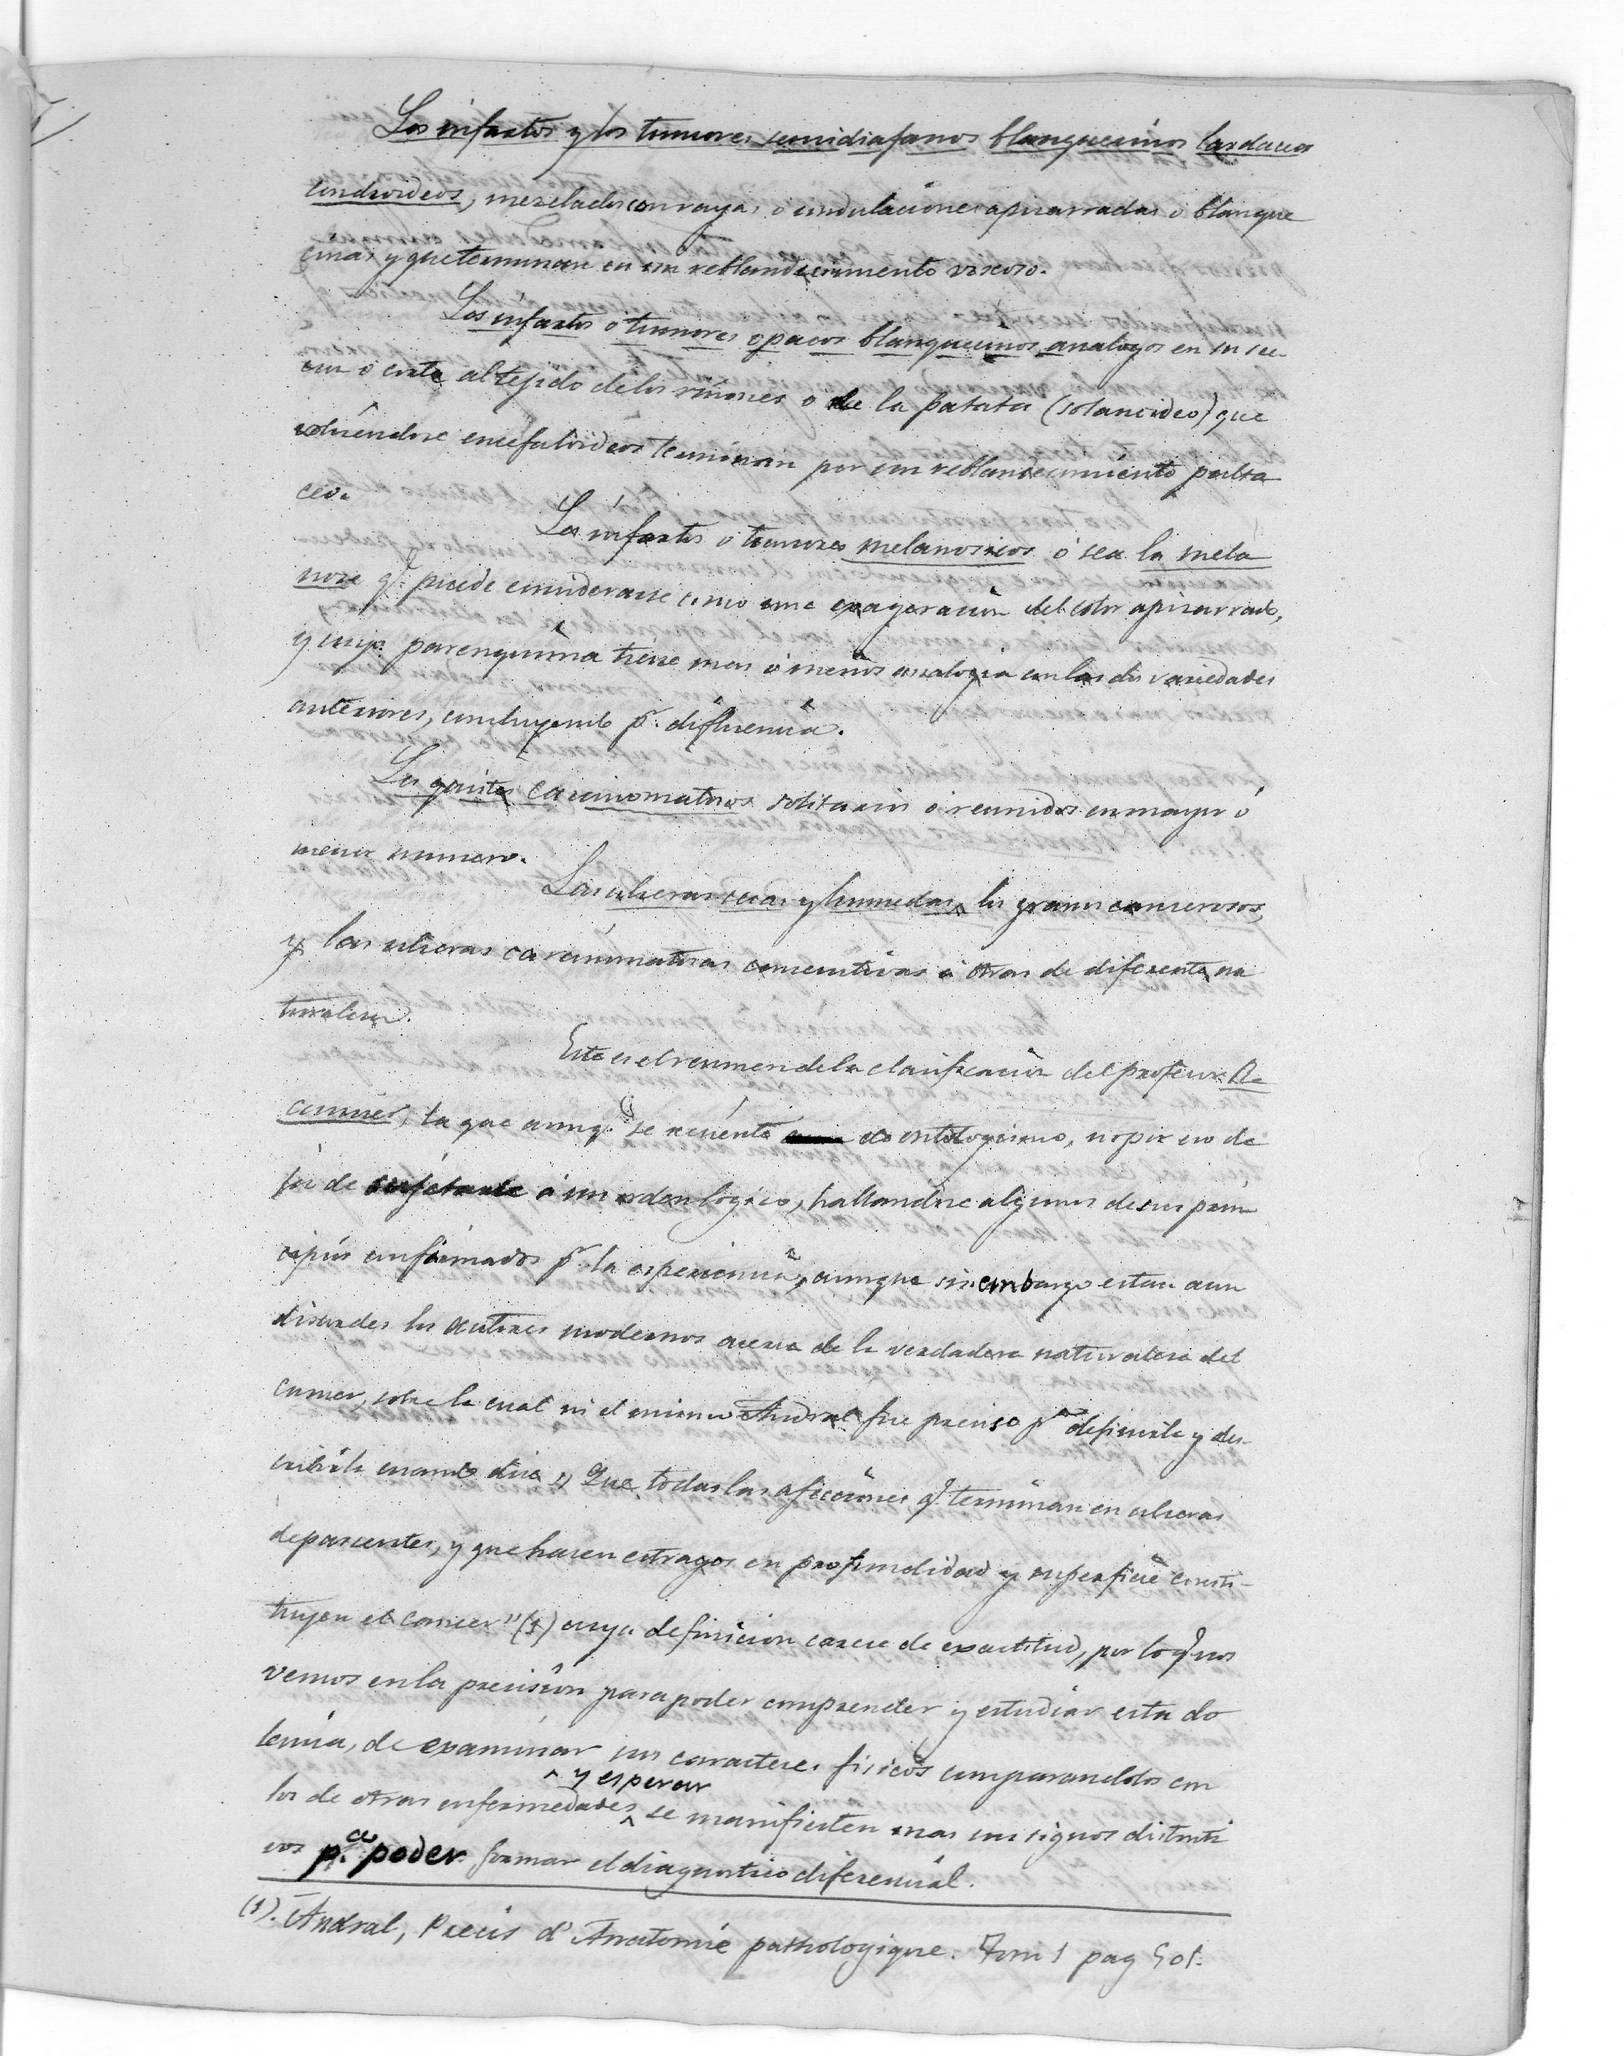 Los infartos y los tumores semidiafanos blanquecinos lardaceos
condroideos, mezclados con rayas ó undulaciones apizarradas ó blanque
cinas y que terminan en un reblandecimiento viscoso.
Los infartos ó tumores opacos blanquecinos analogos en su sec-
cion ó corte al tejido de los riñones o de la patata (solanoideo) que
volviéndose encefaloideos terminan por un reblandecimiento pulta
ceo.
Los infartos o tumores melanosicos ó sea la mela
nose q.e puede considerarse como una exageracion del color apizarrado,
y cuyo parenquima tiene mas ó menos analogia con las dos variedades
anteriores, concluyendo p.r difluencia.
Los quistes carcinomatosos solitarios ó reunidos en mayor ó
menor numero.
Las ulceras secas y humedas, los granos cancerosos,
y las ulceras carcinomatosas consecutivas á otras de diferente na
turaleza.
Este es el resumen de la clasificacion del profesor Re
camier, la que aunq.e se resiente de ontologismo, no por eso de
ja de sujetarse á un orden logico, hallandose algunos de sus prin
cipios confirmados p.r la esperiencia, aunque sin embargo estan aun
discordes los autores modernos acerca de la verdadera naturaleza del
cancer, sobre la cual ni el mismo Andral fue preciso p.a definirle y des-
cribirle cuando dice "Que todas las afecciones q.e terminan en ulceras
depascentes, y que hacen estragos en profundidad y superficie consti-
tuyen el cancer" (1) cuya definicion carece de exactitud, por lo q.e nos
vemos en la precision para poder comprender y estudiar esta do
lencia, de examinar sus caracteres fisicos comparandolos con
y esperar
los de otras enfermedades se manifiesten mas sus signos distinti
vos p.a poder formar el diagnostico diferencial.
(1). Andral, Precis d'Anatomie pathologique. Tom 1 pag 501.